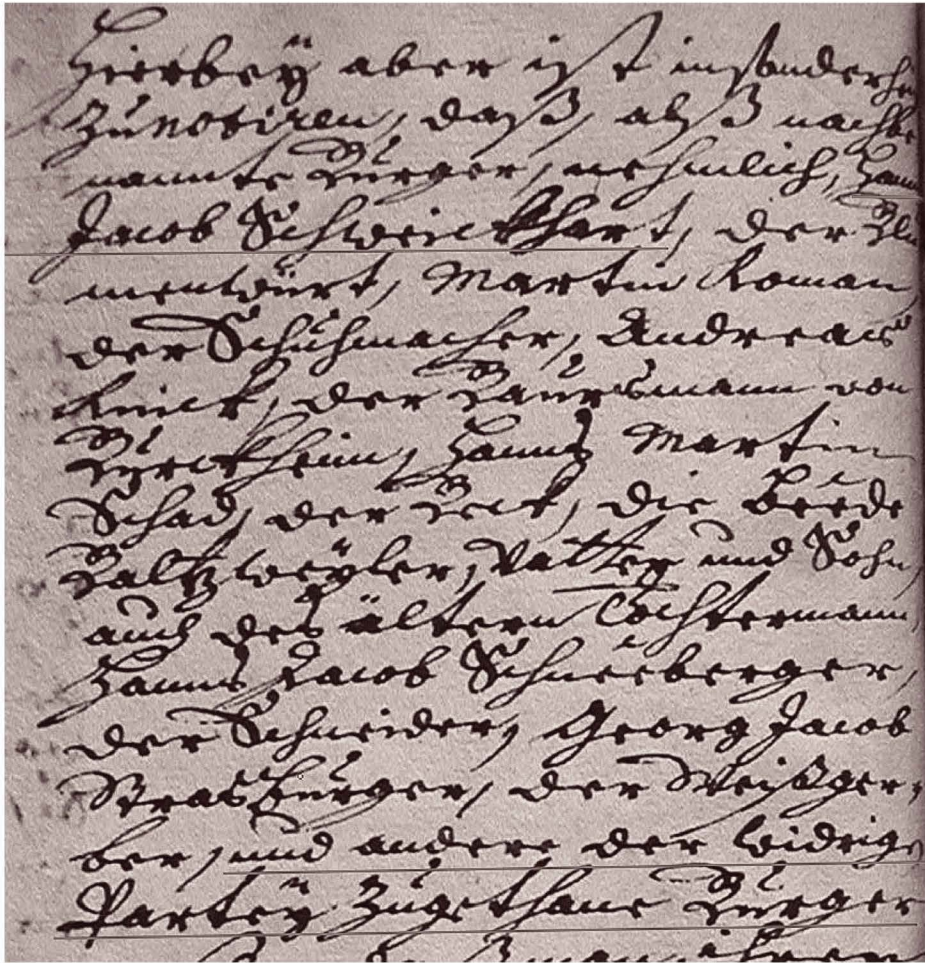 Hierbeÿ aber ist insonderh
Zu notiren, daß, alß nachbe
nannte Bürger, nehmlich, Hann
Jacob Schweickhart, der Blu
menwürt, Martin Roman,
der Schuhmacher, Andreas
Krick, der Baursmann von
Türckheim, Hannß Martin
Schad, der Beck, die beede
Baltzweÿler, Vatter und Sohn,
auch des ältern Tochtermann,
Hannß Jacob Schneeberger,
der Schneider, Georg Jacob
Strasburger, der Weißger,
ber, und andere der widrige
Parteÿ Zugethane Bürger